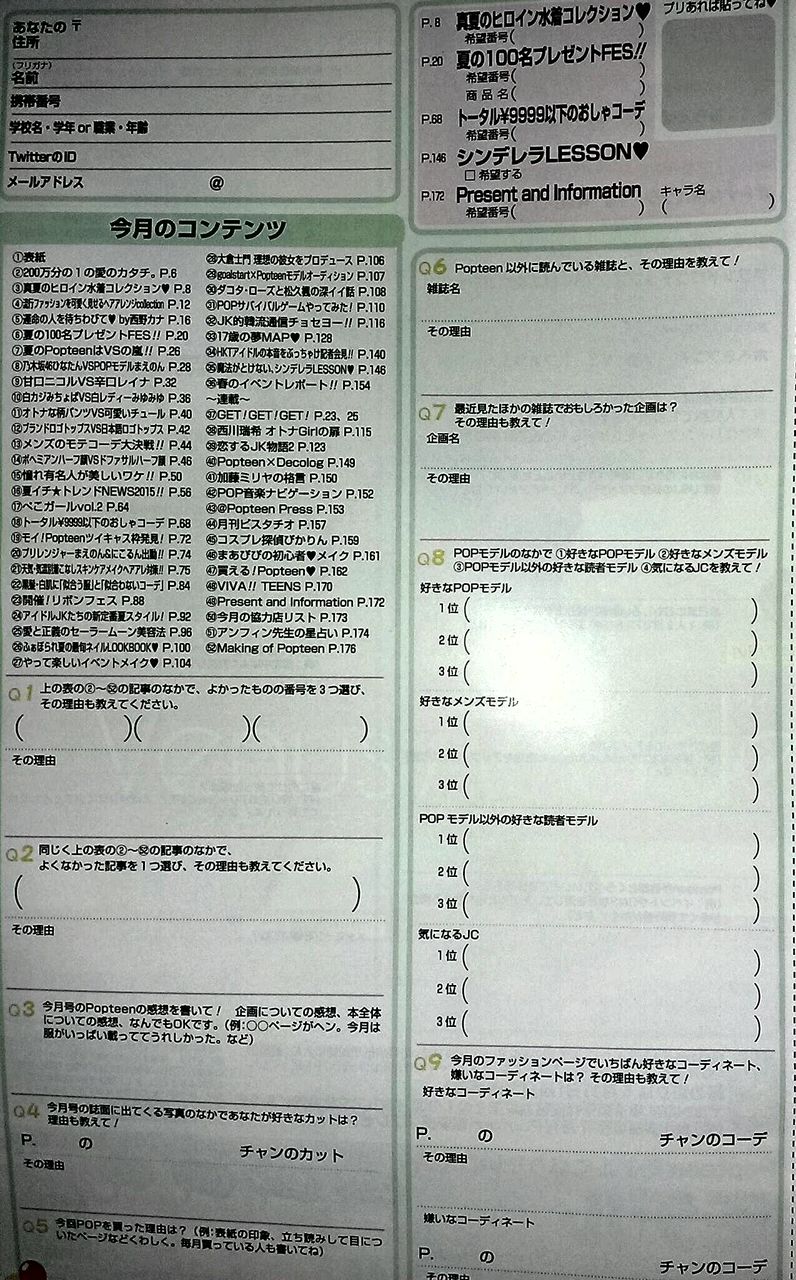 あなたの 〒
住所
(フリガナ)
名前
携帯番号
学校名・学年 or 職業・年齢
TwitterのID
メールアドレス @
P.8 真夏のヒロイン水着コレクション♥
希望番号( )
P.20 夏の100名プレゼントFES!!
希望番号( )
商品名( )
P.68 トータル¥9999以下のおしゃコーデ
希望番号( )
P.146 シンデレラLESSON♥
□ 希望する
P.172 Present and Information
希望番号( )
プリあれば貼ってね♥
キャラ名
( )
今月のコンテンツ
①表紙
②200万分の1の愛のカタチ。P.6
③真夏のヒロイン水着コレクション♥ P.8
④流行ファッションを可愛く見せるヘアアレンジcollection P.12
⑤運命の人を待ちわびて♥ by西野カナ P.16
⑥夏の100名プレゼントFES!! P.20
⑦夏のPopteenはVSの嵐!! P.26
⑧乃木坂46ひなたんVSPOPモデルまえのん P.28
⑨甘口ニコルVS辛口レイナ P.32
⑩白カジみちょぱVS白レディーみゆみゆ P.36
⑪オトナな柄パンツVS可愛いチュール P.40
⑫ブランドロゴトップスVS日本語ロゴトップス P.42
⑬メンズのモテコーデ大決戦!! P.44
⑭ボヘミアンハーフ顔VSドファサルハーフ顔 P.46
⑮憧れ有名人が美しいワケ!! P.50
⑯夏イチ★トレンドNEWS2015!! P.56
⑰ぺこガールvol.2 P.64
⑱トータル¥9999以下のおしゃコーデ P.68
⑲モイ!Popteenツイキャス枠発見! P.72
⑳プリレンジャーまえのん&にこるん出動!! P.74
㉑天気・気温別着こなしスキンケアメイクヘアアレ対策!! P.75
㉒黒髪・白肌に「似合う服」と「似合わないコーデ」P.84
㉓開催!リボンフェス P.88
㉔アイドルJKたちの新定番夏スタイル! P.92
㉕愛と正義のセーラームーン美容法 P.96
㉖ふぉぼられ夏の最旬ネイルLOOKBOOK♥ P.100
㉗やって楽しいイベントメイク♥ P.104
㉘大倉士門 理想の彼女をプロデュース P.106
㉙goalstart×Popteenモデルオーディション P.107
㉚ダコタ・ローズと松久楓の深イイ話 P.108
㉛POPサバイバルゲームやってみた! P.110
㉜JK的韓流通信チョセヨー!! P.116
㉝17歳の夢MAP♥ P.128
㉞HKTアイドルの本音をぶっちゃけ記者会見!! P.140
㉟魔法がとけない、シンデレラLESSON♥ P.146
㊱春のイベントレポート!! P.154
〜連載〜
㊲GET!GET!GET! P.23、25
㊳西川瑞希 オトナGirlの扉 P.115
㊴恋するJK物語2 P.123
㊵Popteen×Decolog P.149
㊶加藤ミリヤの格言 P.150
㊷POP音楽ナビゲーション P.152
㊸@Popteen Press P.153
㊹月刊ピスタチオ P.157
㊺コスプレ探偵ぴかりん P.159
㊻まあぴぴの初心者♥メイク P.161
㊼買える!Popteen♥ P.162
㊽VIVA!! TEENS P.170
㊾Present and Information P.172
㊿今月の協力店リスト P.173
51アンフィン先生の星占い P.174
52Making of Popteen P.176
Q1 上の表の②〜52の記事のなかで、よかったものの番号を3つ選び、
その理由も教えてください。
( )( )( )
その理由
Q2 同じく上の表の②〜52の記事のなかで、
よくなかった記事を1つ選び、その理由も教えてください。
( )
その理由
Q3 今月号のPopteenの感想を書いて! 企画についての感想、本全体
についての感想、なんでもOKです。(例:○○ページがヘン。今月は
服がいっぱい載っててうれしかった。など)
Q4 今月号の誌面に出てくる写真のなかであなたが好きなカットは?
理由も教えて!
P. の チャンのカット
その理由
Q5 今回POPを買った理由は?(例:表紙の印象、立ち読みして目につ
いたページなどくわしく。毎月買っている人も書いてね)
Q6 Popteen 以外に読んでいる雑誌と、その理由を教えて!
雑誌名
その理由
Q7 最近見たほかの雑誌でおもしろかった企画は?
その理由も教えて!
企画名
その理由
Q8 POPモデルのなかで ①好きなPOPモデル ②好きなメンズモデル
③POPモデル以外の好きな読者モデル ④気になるJCを教えて!
好きなPOPモデル
1位( )
2位( )
3位( )
好きなメンズモデル
1位( )
2位( )
3位( )
POP モデル以外の好きな読者モデル
1位( )
2位( )
3位( )
気になるJC
1位( )
2位( )
3位( )
Q9 今月のファッションページでいちばん好きなコーディネート、
嫌いなコーディネートは? その理由も教えて!
好きなコーディネート
P. の チャンのコーデ
その理由
嫌いなコーディネート
P. の チャンのコーデ
その理由